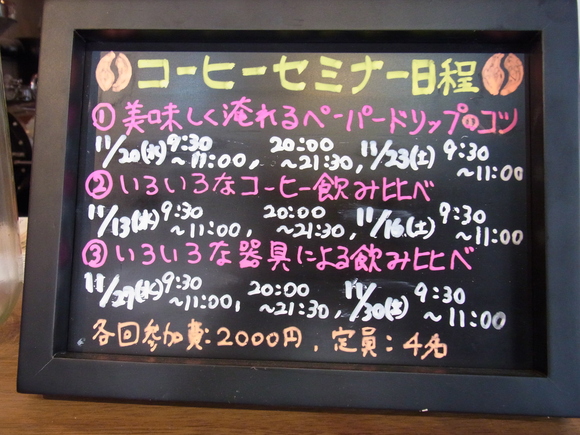 コーヒーセミナー日程
①美味しく淹れるペーパードリップのコツ
11/20(水) 9:30～11:00, 20:00～21:30, 11/23(土) 9:30～11:00
②いろいろなコーヒー飲み比べ
11/13(水) 9:30～11:00, 20:00～21:30, 11/16(土) 9:30～11:00
③いろいろな器具による飲み比べ
11/27(水) 9:30～11:00, 20:00～21:30, 11/30(土) 9:30～11:00
各回参加費:2000円, 定員:4名